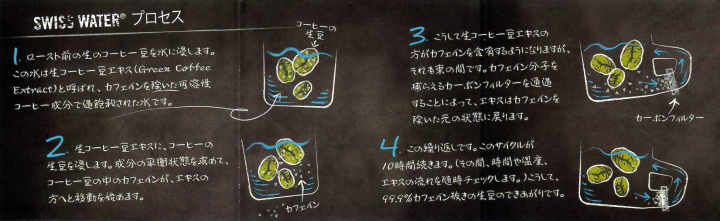 SWISS WATER® プロセス
コーヒーの
生豆
1. ロースト前の生のコーヒー豆を水に浸します。
この水は生コーヒー豆エキス(Green Coffee
Extract)と呼ばれ、カフェインを除いた可溶性
コーヒー成分で過飽和された水です。
2. 生コーヒー豆エキスに、コーヒーの
生豆を浸します。成分の平衡状態を求めて、
コーヒー豆の中のカフェインが、エキスの
方へと移動を始めます。
カフェイン
3. こうして生コーヒー豆エキスの
方がカフェインを含有するようになりますが、
それも束の間です。カフェイン分子を
捕らえるカーボンフィルターを通過
することによって、エキスはカフェインを
除いた元の状態に戻ります。
カーボンフィルター
4. この繰り返しです。このサイクルが
10時間続きます。(その間、時間や温度、
エキスの流れを随時チェックします。)こうして、
99.9%カフェイン抜きの生豆のできあがりです。